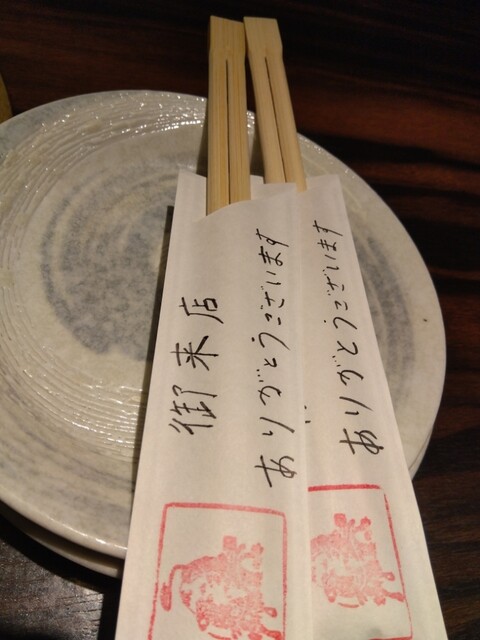 御来店
ありがとうございます
ありがとうございます